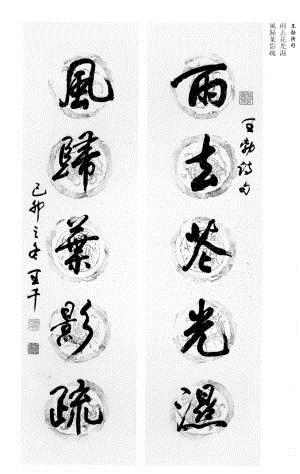 王勃詩句
雨去花光濕
風歸葉影疏
雨去花光濕
王勃詩句
風歸葉影疏
己卯之